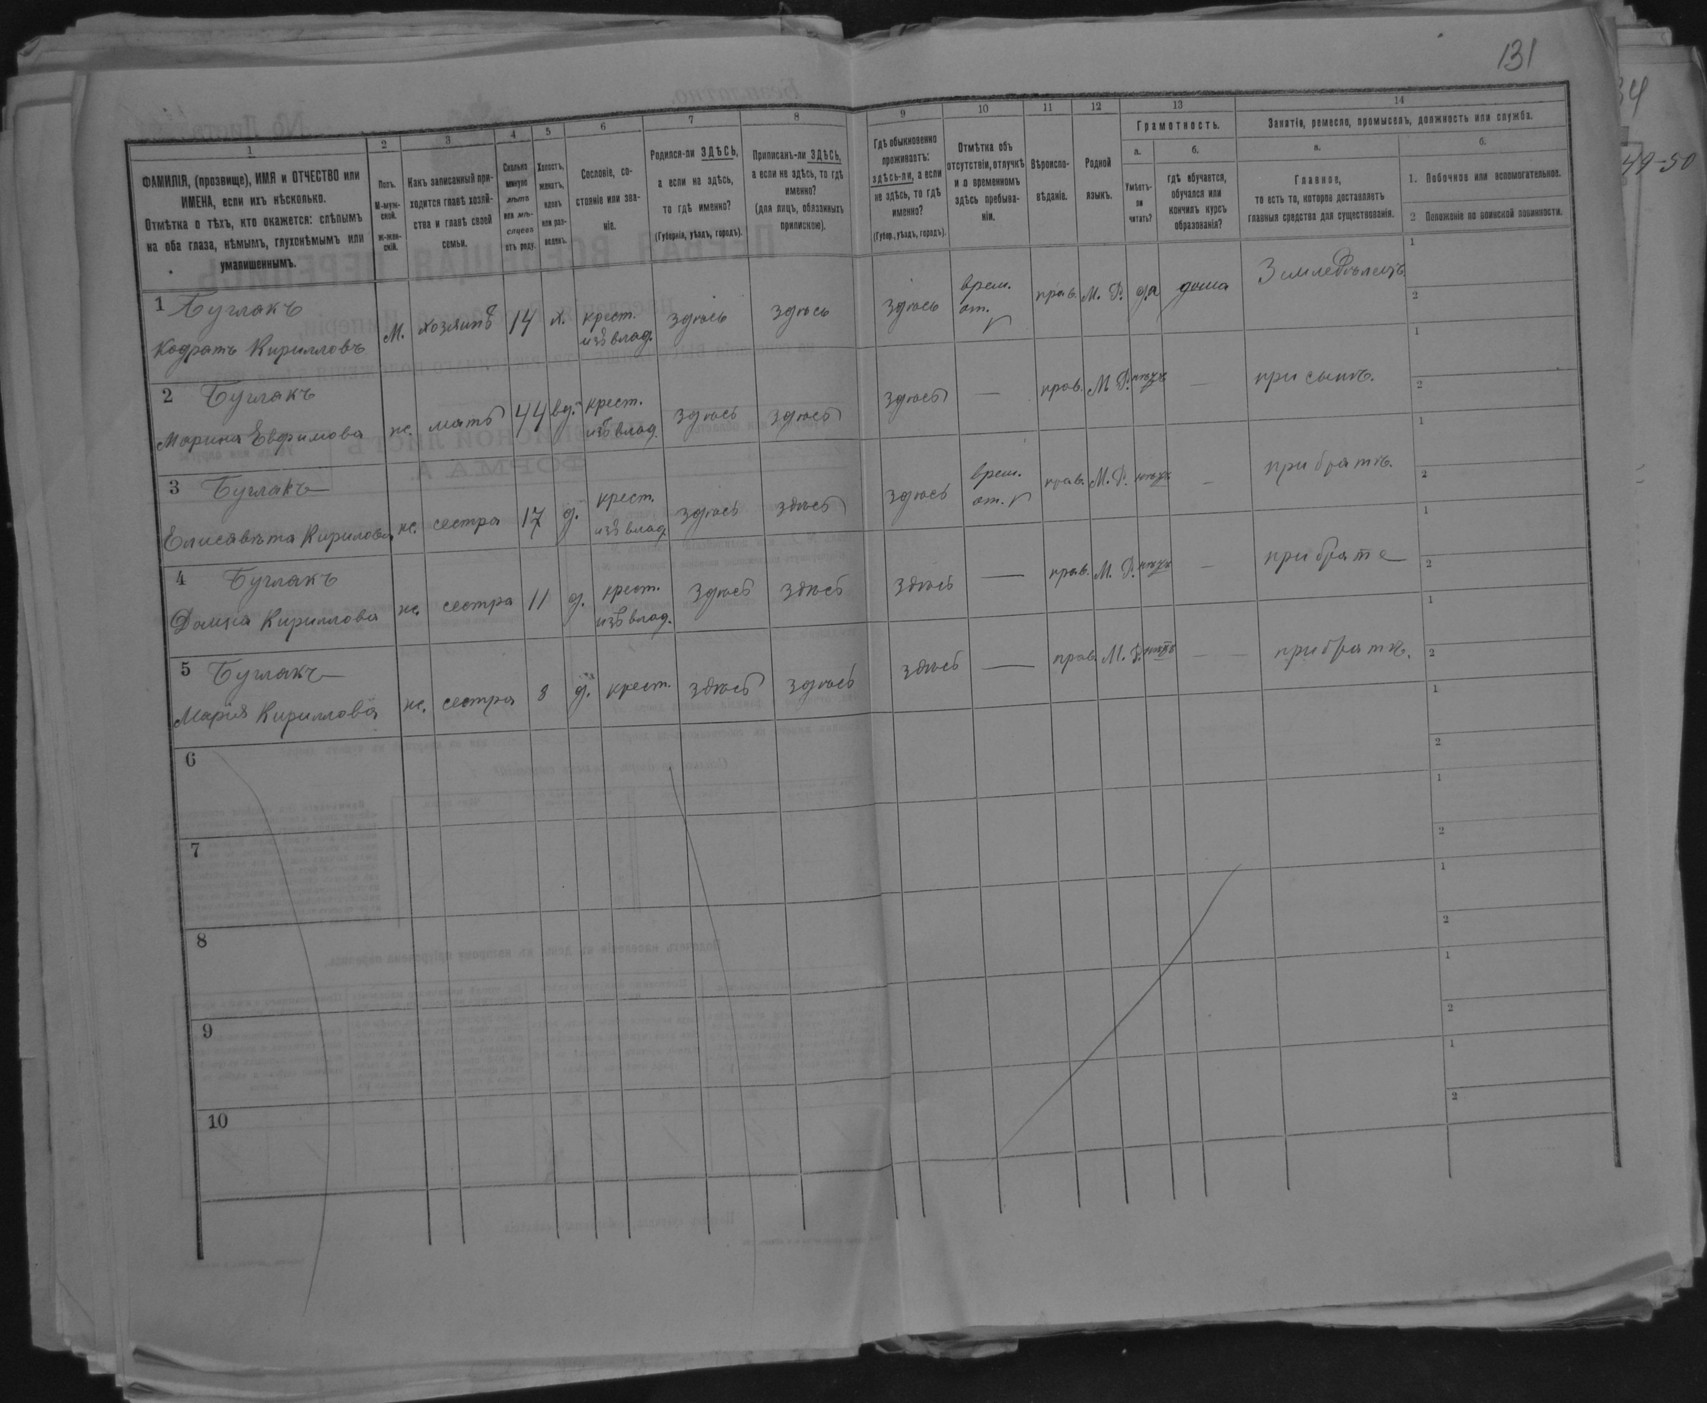 131
1
ФАМИЛІЯ, (прозвище), ИМЯ и ОТЧЕСТВО или
ИМЕНА, если ихъ нѣсколько.
Отмѣтка о тѣхъ, кто окажется: слѣпымъ
на оба глаза, нѣмымъ, глухонѣмымъ или
умалишеннымъ.
2
Полъ.
М-муж-
ской.
Ж-жен-
скій.
3
Какъ записанный при-
ходится главѣ хозяй-
ства и главѣ своей
семьи.
4
Сколько
минуло
лѣтъ
или мѣ-
сяцевъ
отъ роду.
5
Холостъ,
женатъ,
вдовъ
или раз-
веденъ.
6
Сословіе, со-
стояніе или зва-
ніе.
7
Родился-ли ЗДѢСЬ,
а если не здѣсь,
то гдѣ именно?
(Губернія, уѣздъ, городъ).
8
Приписанъ-ли ЗДѢСЬ,
а если не здѣсь, то гдѣ
именно?
(для лицъ, обязанныхъ
припискою).
9
Гдѣ обыкновенно
проживаетъ:
здѣсь-ли, а если
не здѣсь, то гдѣ
именно?
(Губер., уѣздъ, городъ).
10
Отмѣтка объ
отсутствіи, отлучкѣ
и о временномъ
здѣсь пребыва-
ніи.
11
Вѣроиспо-
вѣданіе.
12
Родной
языкъ.
13
Грамотность.
а.
Умѣетъ-
ли
читать?
б.
Гдѣ обучается,
обучался или
кончилъ курсъ
образованія?
14
Занятіе, ремесло, промыселъ, должность или служба.
а.
Главное,
то есть то, которое доставляетъ
главныя средства для существованія.
б.
1. Побочное или вспомогательное.
2 Положеніе по воинской повинности.
1 Буглакъ
Кодратъ Кирилловъ
М. хозяинъ 14 х. крест.
изъ влад. здѣсь здѣсь здѣсь врем.
от. прав. М. Р. да дома Земледѣлецъ
1
2
2 Буглакъ
Марина Евфимова
же. мать 44 вд. крест.
изъ влад. здѣсь здѣсь здѣсь — прав. М. Р. — при сынѣ.
1
2
3 Буглакъ
Елисавета Кирилова
же. сестра 17 д. крест.
изъ влад. здѣсь здѣсь здѣсь врем.
от. прав. М. Р. — при братѣ.
1
2
4 Буглакъ
Кириллова
же. сестра 11 д. крест.
изъ влад. здѣсь здѣсь здѣсь — прав. М. Р. — при брате
1
2
5 Буглакъ
Марія Кириллова
же. сестра 8 д. крест. здѣсь здѣсь здѣсь — прав. М. Р. — при братѣ.
1
2
6
1
2
7
1
2
8
1
2
9
1
2
10
1
2
49-50